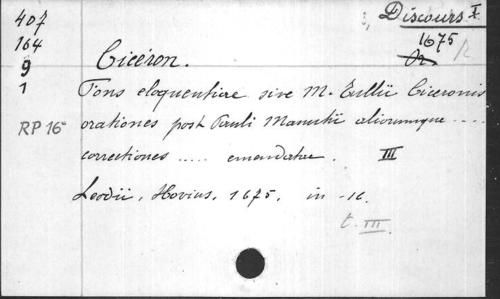 407
164
9
1
RP 16
Discours I
1675
R
Cicéron.
Fons eloquentiae sive M. Tullii Ciceronis
orationes post Pauli Manutii aliorumque ....
correctiones ..... emendatae. III
Leodii, Hovius, 1675, in-16.
t. III